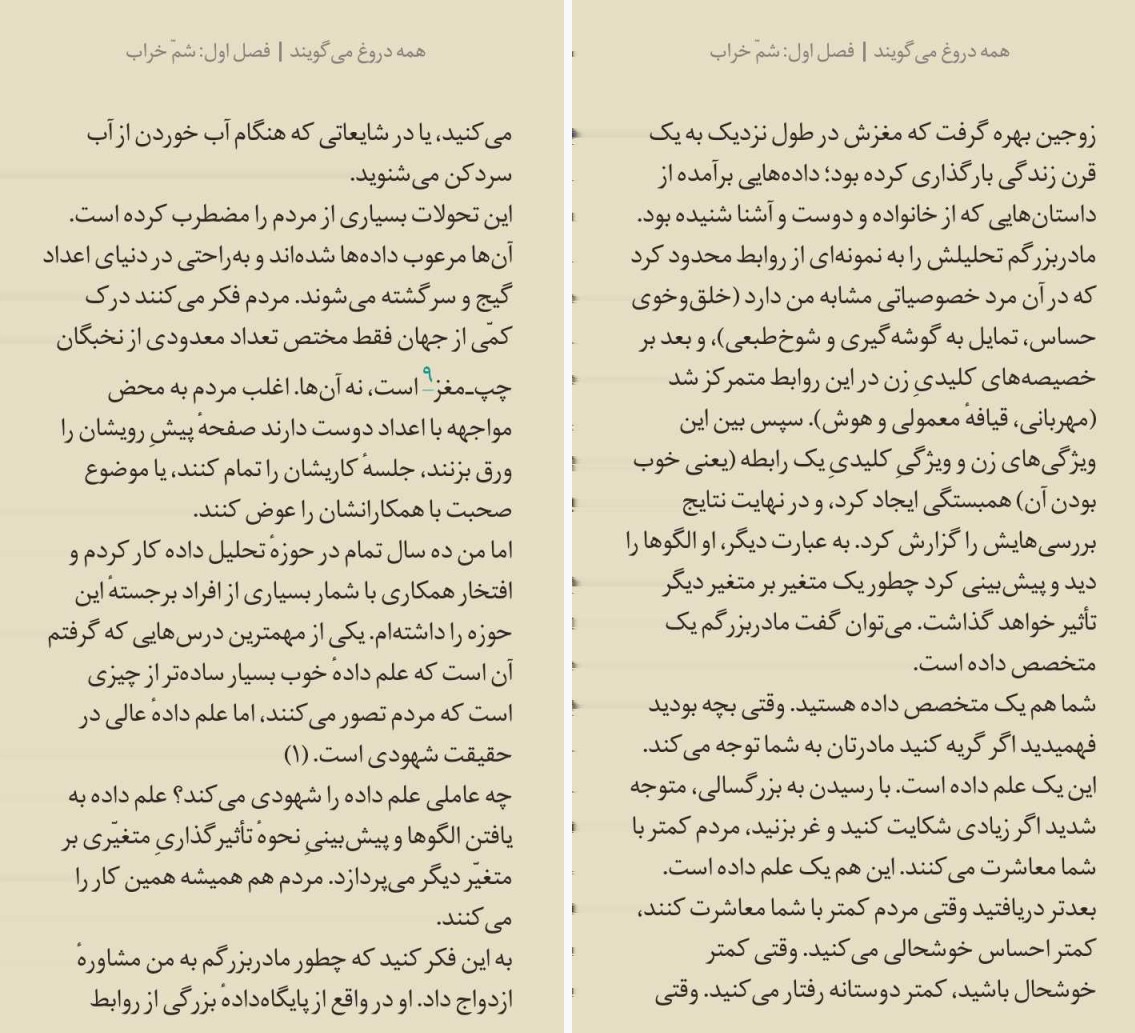 همه دروغ می‌گویند | فصل اول: شمّ خراب
می‌کنید، یا در شایعاتی که هنگام آب خوردن از آب
سردکن می‌شنوید.
این تحولات بسیاری از مردم را مضطرب کرده است.
آن‌ها مرعوب داده‌ها شده‌اند و به‌راحتی در دنیای اعداد
گیج و سرگشته می‌شوند. مردم فکر می‌کنند درک
کمّی از جهان فقط مختص تعداد معدودی از نخبگان
چپ‌ـمغز۹ است، نه آن‌ها. اغلب مردم به محض
مواجهه با اعداد دوست دارند صفحهٔ پیشِ رویشان را
ورق بزنند، جلسهٔ کاریشان را تمام کنند، یا موضوع
صحبت با همکارانشان را عوض کنند.
اما من ده سال تمام در حوزهٔ تحلیل داده کار کردم و
افتخار همکاری با شمار بسیاری از افراد برجستهٔ این
حوزه را داشته‌ام. یکی از مهمترین درس‌هایی که گرفتم
آن است که علم دادهٔ خوب بسیار ساده‌تر از چیزی
است که مردم تصور می‌کنند، اما علم دادهٔ عالی در
حقیقت شهودی است. (۱)
چه عاملی علم داده را شهودی می‌کند؟ علم داده به
یافتن الگوها و پیش‌بینیِ نحوهٔ تأثیرگذاریِ متغیّری بر
متغیّر دیگر می‌پردازد. مردم هم همیشه همین کار را
می‌کنند.
به این فکر کنید که چطور مادربزرگم به من مشاورهٔ
ازدواج داد. او در واقع از پایگاه‌دادهٔ بزرگی از روابط
همه دروغ می‌گویند | فصل اول: شمّ خراب
زوجین بهره گرفت که مغزش در طول نزدیک به یک
قرن زندگی بارگذاری کرده بود؛ داده‌هایی برآمده از
داستان‌هایی که از خانواده و دوست و آشنا شنیده بود.
مادربزرگم تحلیلش را به نمونه‌ای از روابط محدود کرد
که در آن مرد خصوصیاتی مشابه من دارد (خلق‌وخوی
حساس، تمایل به گوشه‌گیری و شوخ‌طبعی)، و بعد بر
خصیصه‌های کلیدیِ زن در این روابط متمرکز شد
(مهربانی، قیافهٔ معمولی و هوش). سپس بین این
ویژگی‌های زن و ویژگیِ کلیدیِ یک رابطه (یعنی خوب
بودن آن) همبستگی ایجاد کرد، و در نهایت نتایج
بررسی‌هایش را گزارش کرد. به عبارت دیگر، او الگوها را
دید و پیش‌بینی کرد چطور یک متغیر بر متغیر دیگر
تأثیر خواهد گذاشت. می‌توان گفت مادربزرگم یک
متخصص داده است.
شما هم یک متخصص داده هستید. وقتی بچه بودید
فهمیدید اگر گریه کنید مادرتان به شما توجه می‌کند.
این یک علم داده است. با رسیدن به بزرگسالی، متوجه
شدید اگر زیادی شکایت کنید و غر بزنید، مردم کمتر با
شما معاشرت می‌کنند. این هم یک علم داده است.
بعدتر دریافتید وقتی مردم کمتر با شما معاشرت کنند،
کمتر احساس خوشحالی می‌کنید. وقتی کمتر
خوشحال باشید، کمتر دوستانه رفتار می‌کنید. وقتی